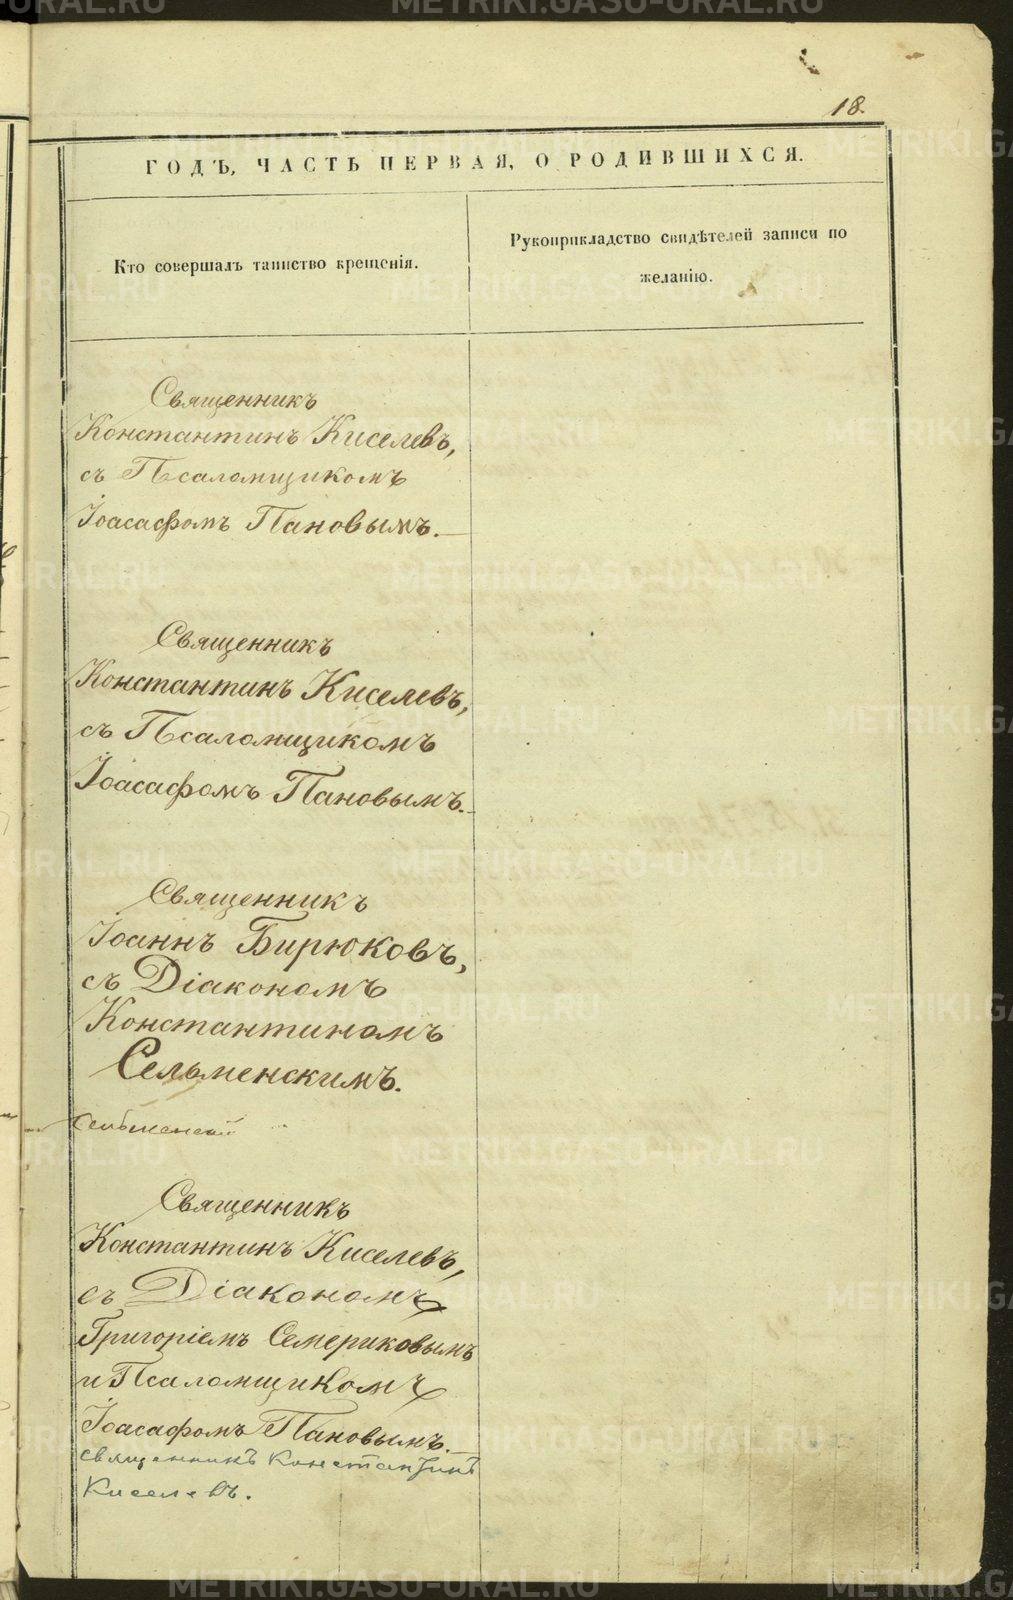 18.
ГОДЪ, ЧАСТЬ ПЕРВАЯ, О РОДИВШИХСЯ.
Кто совершалъ таинство крещенія.
Рукоприкладство свидѣтелей записи по
желанію.
Священникъ
Константинъ Киселевъ,
съ Псаломщикомъ
Іоасафомъ Пановымъ.
Священникъ
Константинъ Киселевъ,
съ Псаломщикомъ
Іоасафомъ Пановымъ.
Священникъ
Іоаннъ Бирюковъ,
съ Діакономъ
Константиномъ
Сельменскимъ.
Сельменскій
Священникъ
Константинъ Киселевъ,
съ Діакономъ
Григоріемъ Семериковымъ
и Псаломщикомъ
Іоасафомъ Пановымъ.
священникъ Константинъ
Киселевъ.
METRIKI.GASO-URAL.RU